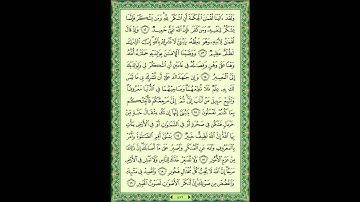 وَلَقَدْ ءَاتَيْنَا لُقْمَٰنَ ٱلْحِكْمَةَ أَنِ ٱشْكُرْ لِلَّهِ وَمَن يَشْكُرْ فَإِنَّمَا
يَشْكُرُ لِنَفْسِهِۦ وَمَن كَفَرَ فَإِنَّ ٱللَّهَ غَنِىٌّ حَمِيدٌ ١٢ وَإِذْ قَالَ
لُقْمَٰنُ لِٱبْنِهِۦ وَهُوَ يَعِظُهُۥ يَٰبُنَىَّ لَا تُشْرِكْ بِٱللَّهِ إِنَّ ٱلشِّرْكَ
لَظُلْمٌ عَظِيمٌ ١٣ وَوَصَّيْنَا ٱلْإِنسَٰنَ بِوَٰلِدَيْهِ حَمَلَتْهُ أُمُّهُۥ
وَهْنًا عَلَىٰ وَهْنٍ وَفِصَٰلُهُۥ فِى عَامَيْنِ أَنِ ٱشْكُرْ لِى وَلِوَٰلِدَيْكَ
إِلَىَّ ٱلْمَصِيرُ ١٤ وَإِن جَٰهَدَاكَ عَلَىٰٓ أَن تُشْرِكَ بِى مَا لَيْسَ
لَكَ بِهِۦ عِلْمٌ فَلَا تُطِعْهُمَا وَصَاحِبْهُمَا فِى ٱلدُّنْيَا مَعْرُوفًا
وَٱتَّبِعْ سَبِيلَ مَنْ أَنَابَ إِلَىَّ ثُمَّ إِلَىَّ مَرْجِعُكُمْ فَأُنَبِّئُكُم
بِمَا كُنتُمْ تَعْمَلُونَ ١٥ يَٰبُنَىَّ إِنَّهَآ إِن تَكُ مِثْقَالَ حَبَّةٍ مِّنْ
خَرْدَلٍ فَتَكُن فِى صَخْرَةٍ أَوْ فِى ٱلسَّمَٰوَٰتِ أَوْ فِى ٱلْأَرْضِ يَأْتِ
بِهَا ٱللَّهُ إِنَّ ٱللَّهَ لَطِيفٌ خَبِيرٌ ١٦ يَٰبُنَىَّ أَقِمِ ٱلصَّلَوٰةَ وَأْمُرْ
بِٱلْمَعْرُوفِ وَٱنْهَ عَنِ ٱلْمُنكَرِ وَٱصْبِرْ عَلَىٰ مَآ أَصَابَكَ إِنَّ ذَٰلِكَ
مِنْ عَزْمِ ٱلْأُمُورِ ١٧ وَلَا تُصَعِّرْ خَدَّكَ لِلنَّاسِ وَلَا تَمْشِ فِى ٱلْأَرْضِ
مَرَحًا إِنَّ ٱللَّهَ لَا يُحِبُّ كُلَّ مُخْتَالٍ فَخُورٍ ١٨ وَٱقْصِدْ فِى مَشْيِكَ
وَٱغْضُضْ مِن صَوْتِكَ إِنَّ أَنكَرَ ٱلْأَصْوَٰتِ لَصَوْتُ ٱلْحَمِيرِ ١٩
٤١٢